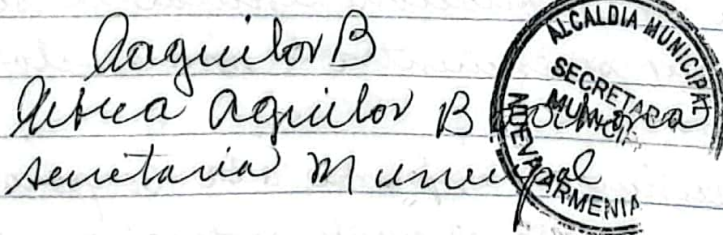 AaguilarB
Aguilar B
secretaria Municipal
ALCALDIA MUNICIPAL
SECRETARIA
MUNICIPAL
NUEVA ARMENIA